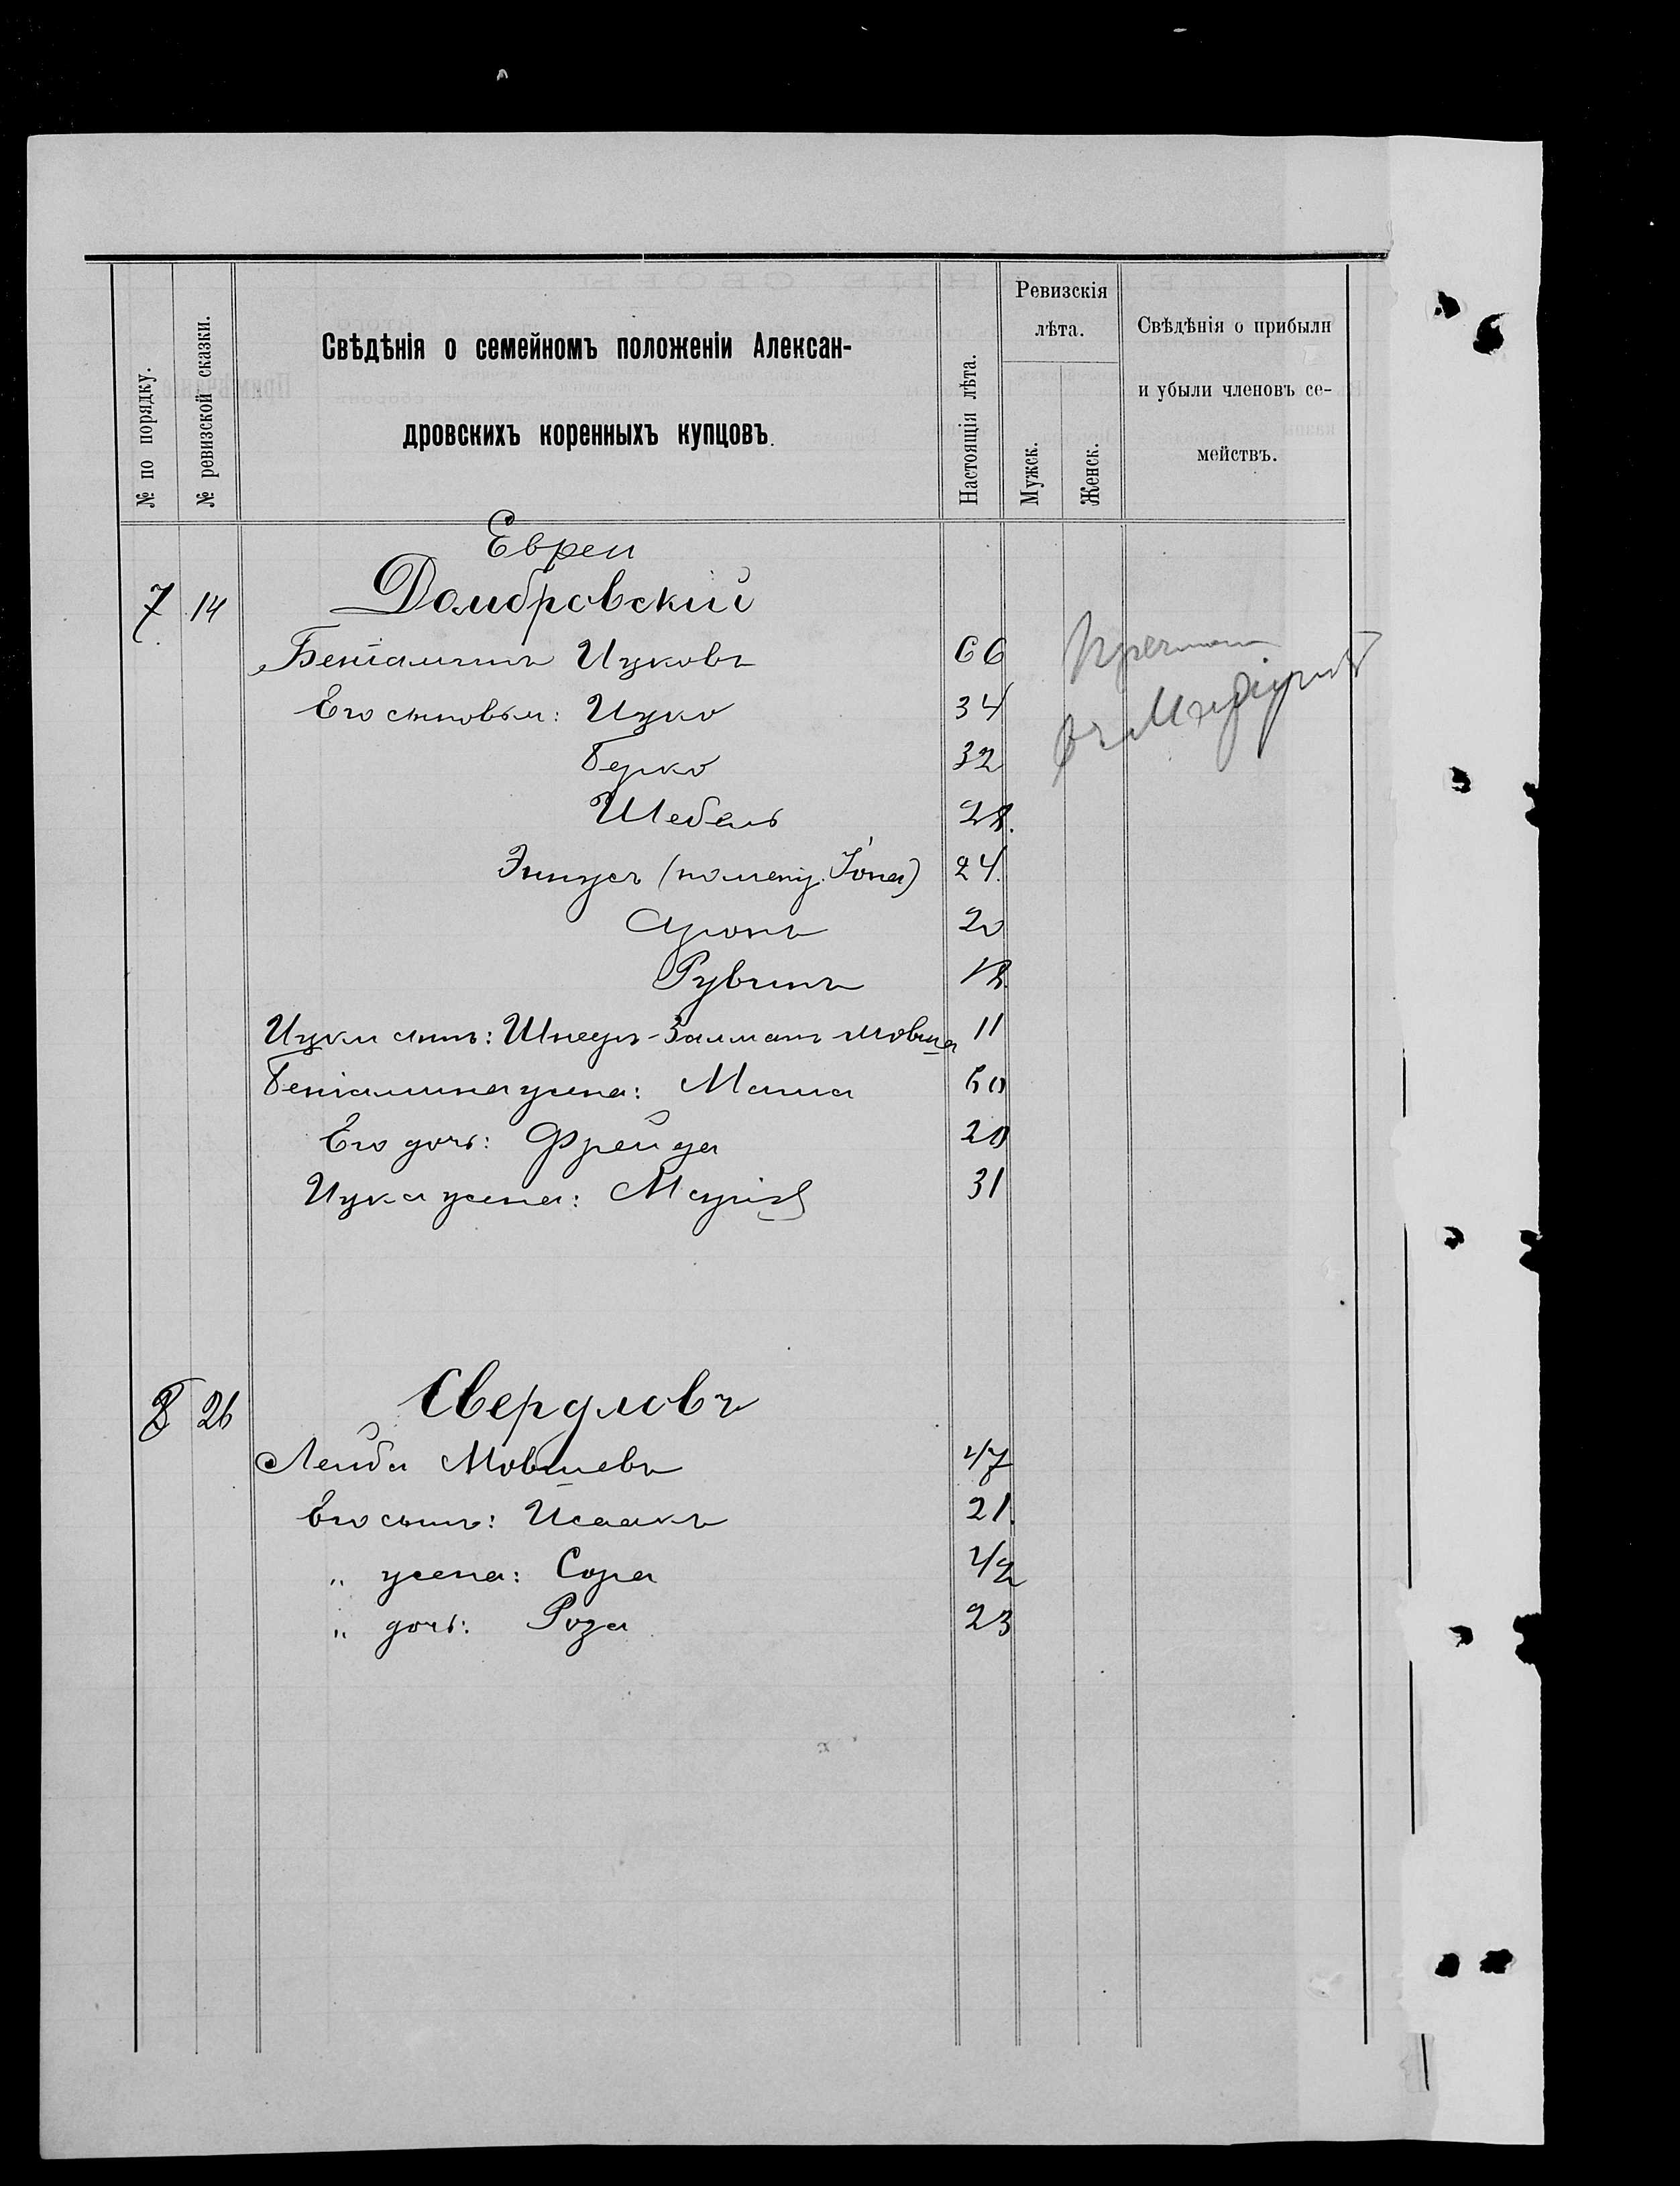 № по порядку.
№ ревизской сказки.
Свѣдѣнія о семейномъ положеніи Алексан-
дровскихъ коренныхъ купцовъ.
Настоящія лѣта.
Ревизскія
лѣта.
Мужск.
Женск.
Свѣдѣнія о прибыли
и убыли членовъ се-
мействъ.
Евреи
7 14 Домбровский
Беніаминъ Ицковъ 66
Его сыновья: Ицко 34
Берко 32
Шебель 28.
(по метр. Іона) 24.
Аронъ 20
Рувинъ 18
Ицки сынъ: Шнеуръ-Залманъ Мовша 11
Беніамина жена: Маша 60
Его дочь: Фрейда 20
Ицка жена: 31
8 26 Свердловъ
Лейба Мовшевъ 47
Его сынъ: Исаакъ 21.
„ жена: Сора 42
„ дочь: Роза 23